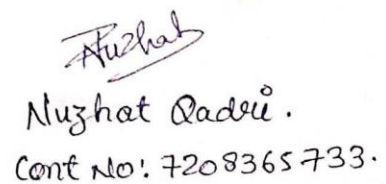 Nuzhat
Nuzhat Qadri.
Cont No: 7208365733.